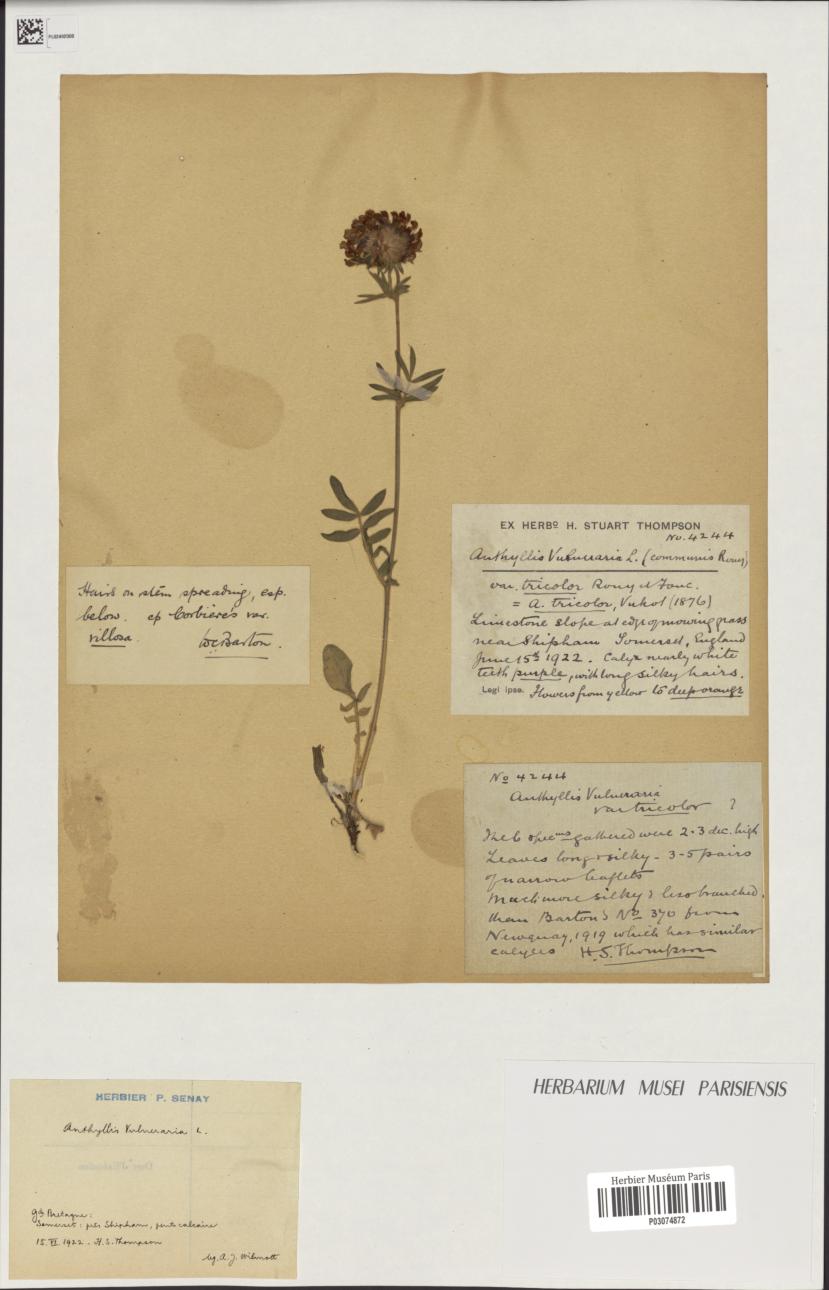 PL02492005
EX HERBº H. STUART THOMPSON
No. 4244
Anthyllis Vulneraria L. (communis Rouy)
var. tricolor Rouy et Fouc.
= A. tricolor, Vukot (1876)
Limestone slope at edge of mowing grass
near Shipham Somerset, England
June 15th 1922. Calyx nearly white
teeth purple, with long silky hairs.
Legi ipse. Flowers from yellow to deep orange
Hairs on stem spreading, esp.
below. cp Corbière's var.
villosa. W.C. Barton.
No 4244
Anthyllis Vulneraria
var tricolor ?
The 6 specms gathered were 2-3 dec. high
Leaves long & silky - 3-5 pairs
of narrow leaflets
Much more silky & less branched,
than Barton's No 370 from
Newquay, 1919 which has similar
calyces H.S. Thompson
HERBIER P. SENAY
Anthyllis Vulneraria L.
Gde Bretagne:
Somerset: près Shipham, pente calcaire
15. VI. 1922. H. S. Thompson
leg. A. J. Wilmott
HERBARIUM MUSEI PARISIENSIS
Herbier Muséum Paris
P03074872